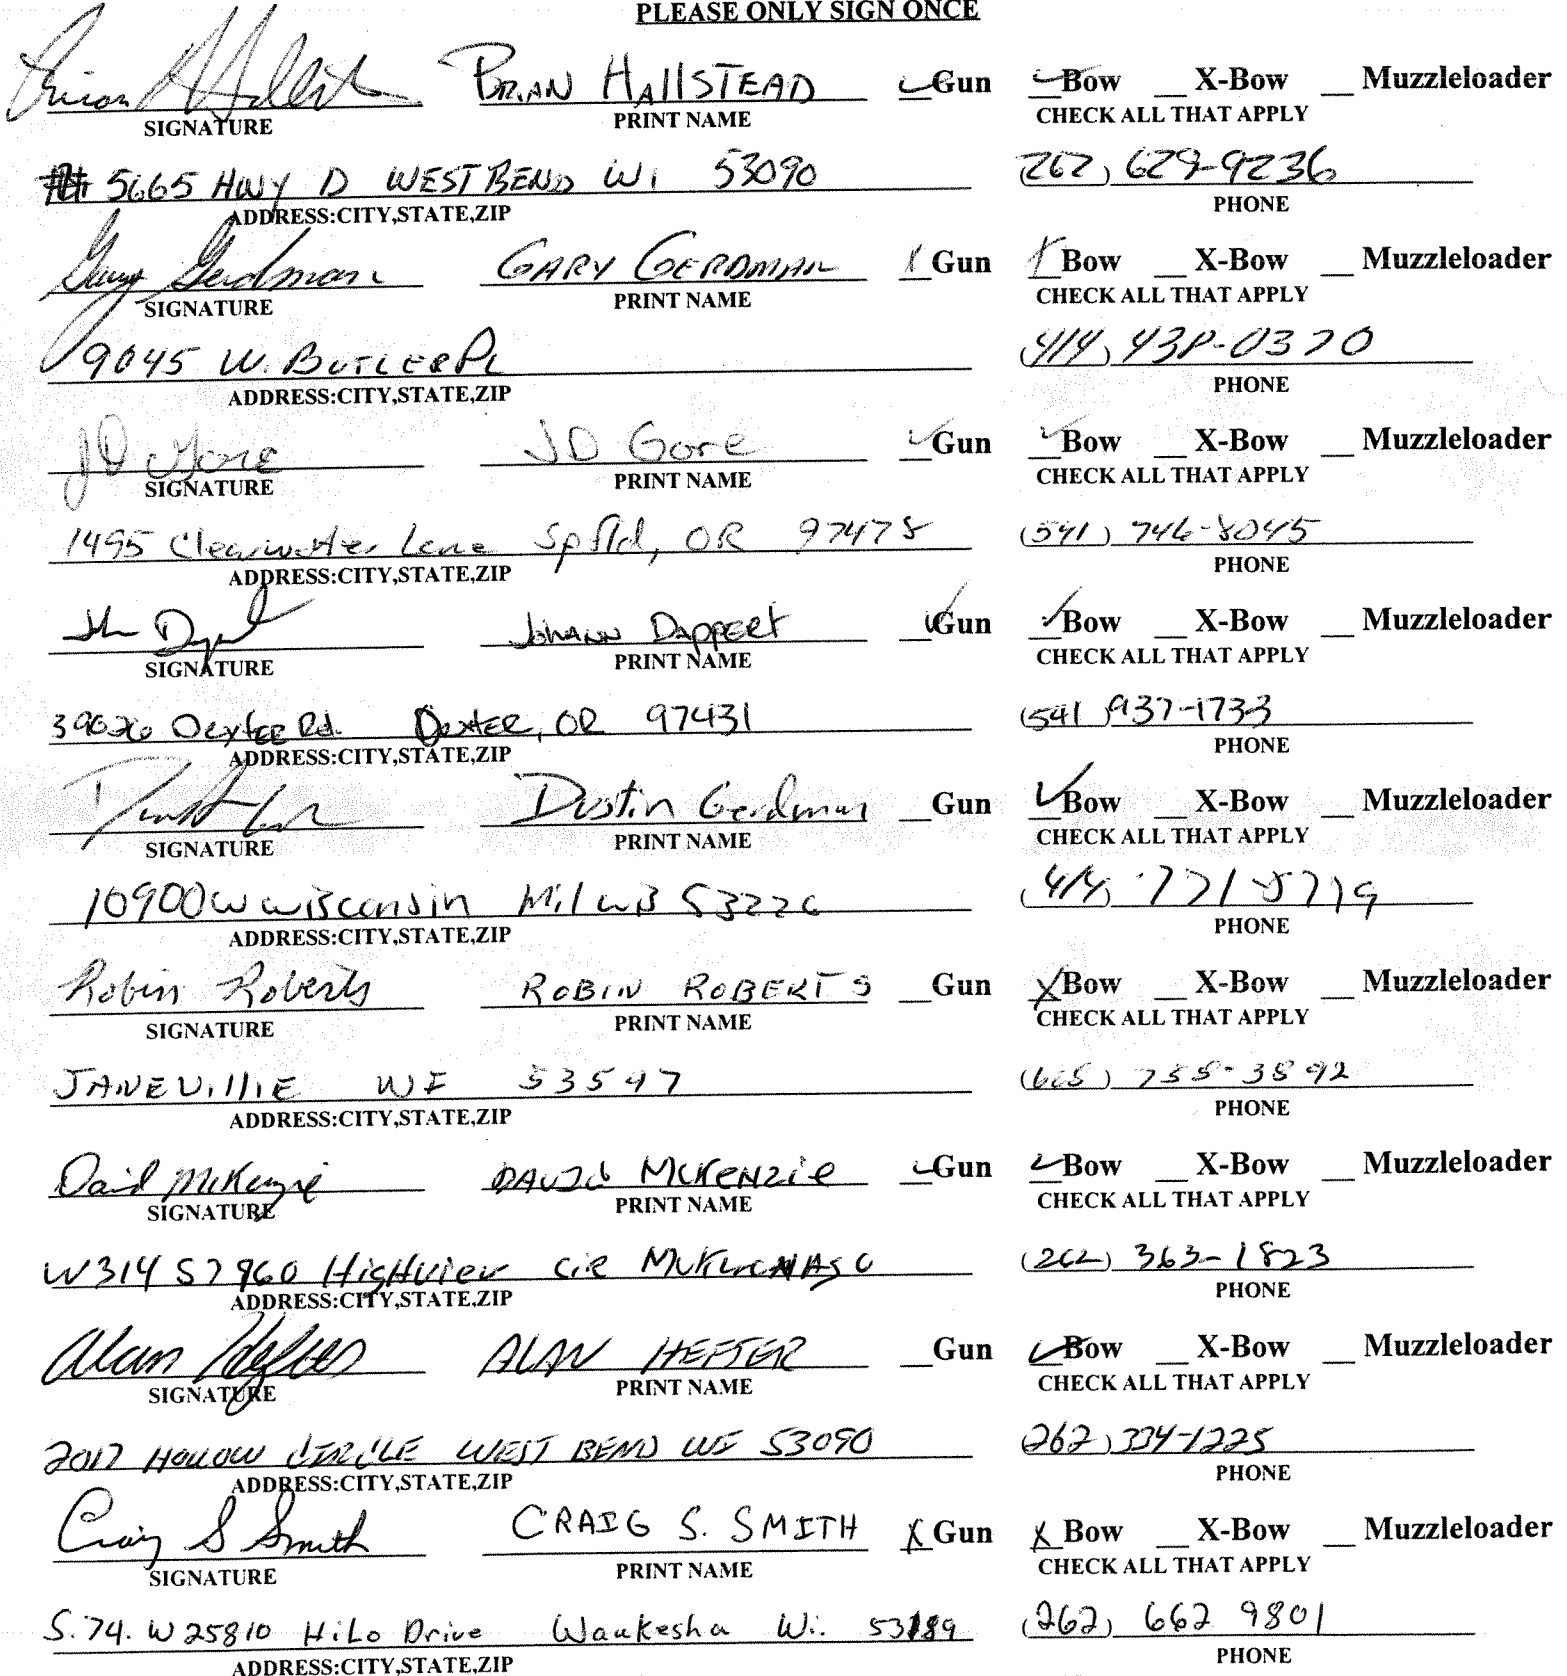 PLEASE ONLY SIGN ONCE
BRIAN HAllSTEAD Gun Bow X-Bow Muzzleloader
SIGNATURE PRINT NAME CHECK ALL THAT APPLY
5665 HWY D WEST BEND WI 53090 (262) 629-9236
ADDRESS:CITY,STATE,ZIP PHONE
Gary Gerdman GARY GERDMAN X Gun X Bow X-Bow Muzzleloader
SIGNATURE PRINT NAME CHECK ALL THAT APPLY
9045 W. BUTLER PL (414) 438-0370
ADDRESS:CITY,STATE,ZIP PHONE
JD Gore JD Gore Gun Bow X-Bow Muzzleloader
SIGNATURE PRINT NAME CHECK ALL THAT APPLY
1495 Clearwater Lane Spfld, OR 97478 (541) 746-8045
ADDRESS:CITY,STATE,ZIP PHONE
JOHANN DAPPERT Gun Bow X-Bow Muzzleloader
SIGNATURE PRINT NAME CHECK ALL THAT APPLY
39026 Dexter Rd. DexTER, OR 97431 (541) 937-1733
ADDRESS:CITY,STATE,ZIP PHONE
Dustin Gerdman Gun Bow X-Bow Muzzleloader
SIGNATURE PRINT NAME CHECK ALL THAT APPLY
10900 W WISconsin Mil WI 53226 (414) 771-5719
ADDRESS:CITY,STATE,ZIP PHONE
Robin Roberts ROBIN ROBERTS Gun X Bow X-Bow Muzzleloader
SIGNATURE PRINT NAME CHECK ALL THAT APPLY
JANEVillIE WI 53547 (608) 755-3892
ADDRESS:CITY,STATE,ZIP PHONE
David McKenzie DAVID McKeNZie Gun Bow X-Bow Muzzleloader
SIGNATURE PRINT NAME CHECK ALL THAT APPLY
W314 S7960 HigHview CiR (262) 363-1823
ADDRESS:CITY,STATE,ZIP PHONE
Alan Hefter ALAN HEFTER Gun Bow X-Bow Muzzleloader
SIGNATURE PRINT NAME CHECK ALL THAT APPLY
2017 HOLLOW CIRCLE WEST BEND WI 53090 (262) 334-1225
ADDRESS:CITY,STATE,ZIP PHONE
Craig S Smith CRAIG S. SMITH X Gun X Bow X-Bow Muzzleloader
SIGNATURE PRINT NAME CHECK ALL THAT APPLY
S.74. W 25810 HiLo Drive Waukesha Wi. 53189 (262) 662 9801
ADDRESS:CITY,STATE,ZIP PHONE